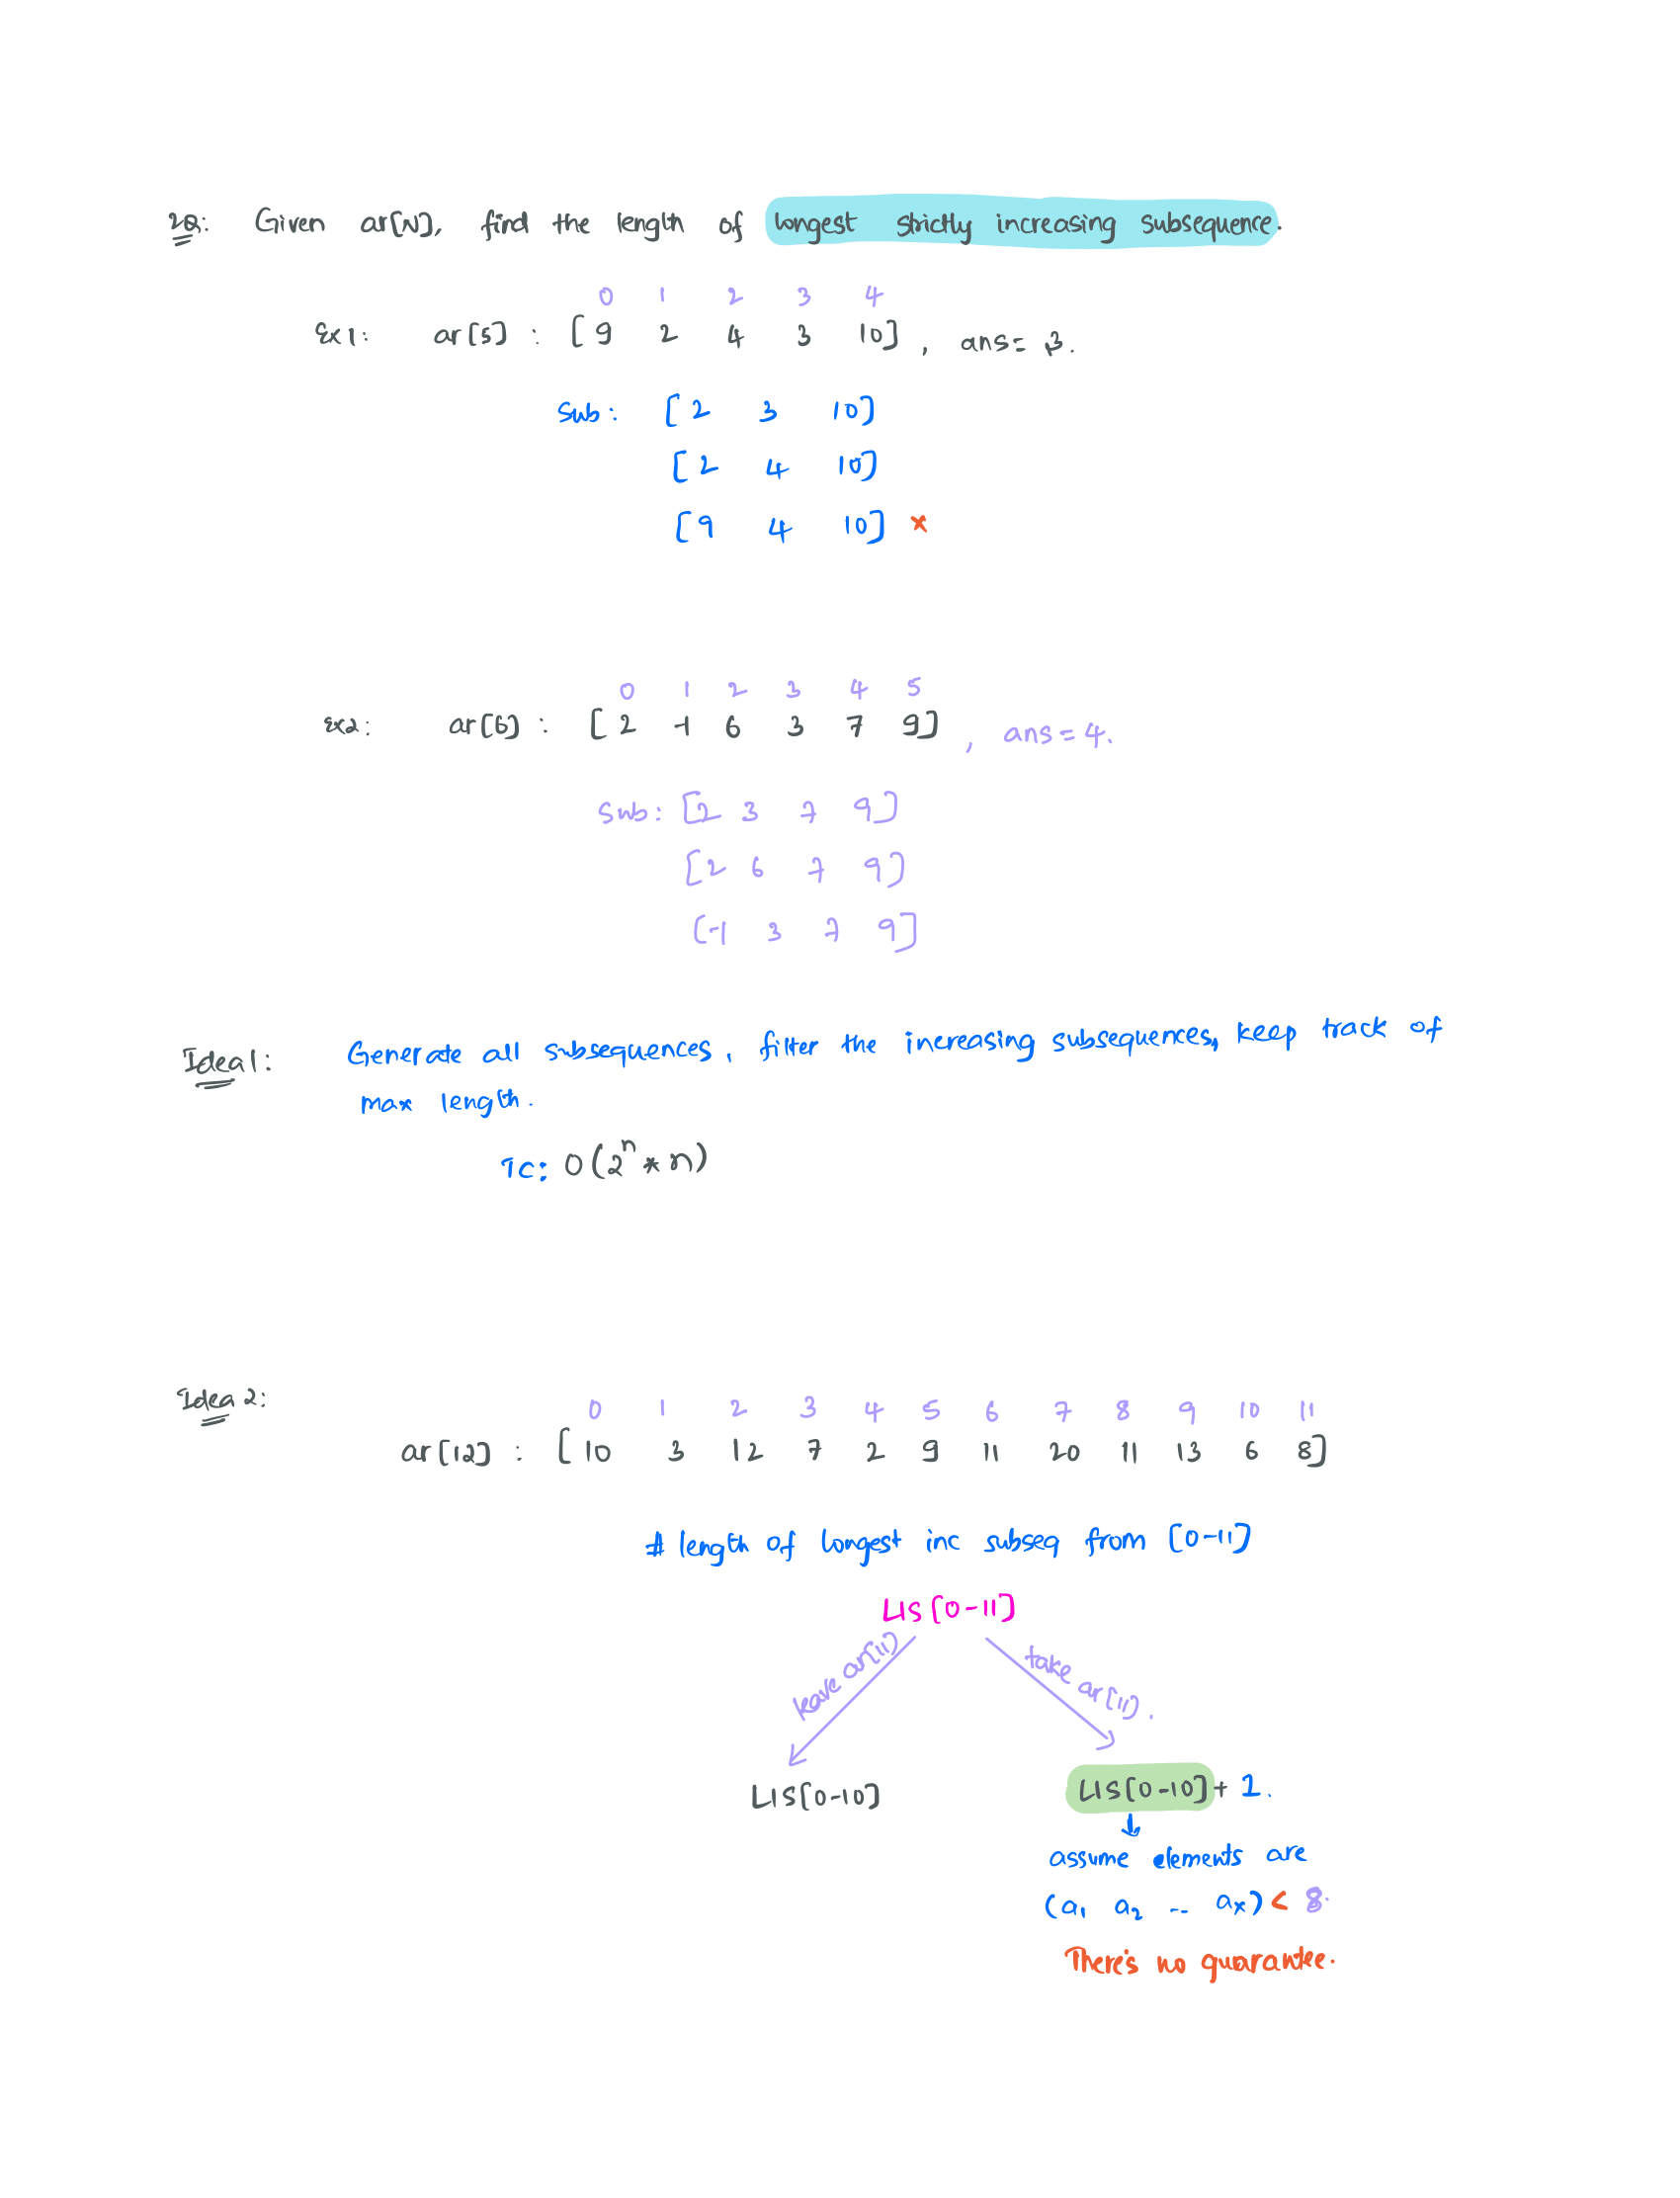 2Q: Given ar[N], find the length of longest strictly increasing subsequence.
0 1 2 3 4
Ex1: ar[5] : [9 2 4 3 10], ans= 3.
Sub: [2 3 10]
[2 4 10]
[9 4 10] x
0 1 2 3 4 5
Ex2: ar[6] : [2 -1 6 3 7 9], ans=4.
Sub: [2 3 7 9]
[2 6 7 9]
[-1 3 7 9]
Idea1: Generate all subsequences, filter the increasing subsequences, keep track of
max length.
TC: O(2^n * n)
Idea 2:
0 1 2 3 4 5 6 7 8 9 10 11
ar[12] : [10 3 12 7 2 9 11 20 11 13 6 8]
# length of longest inc subseq from [0-11]
LIS[0-11]
leave ar[11] take ar[11].
LIS[0-10] LIS[0-10] + 1.
assume elements are
(a1 a2 -- ax) < 8.
There's no guarantee.